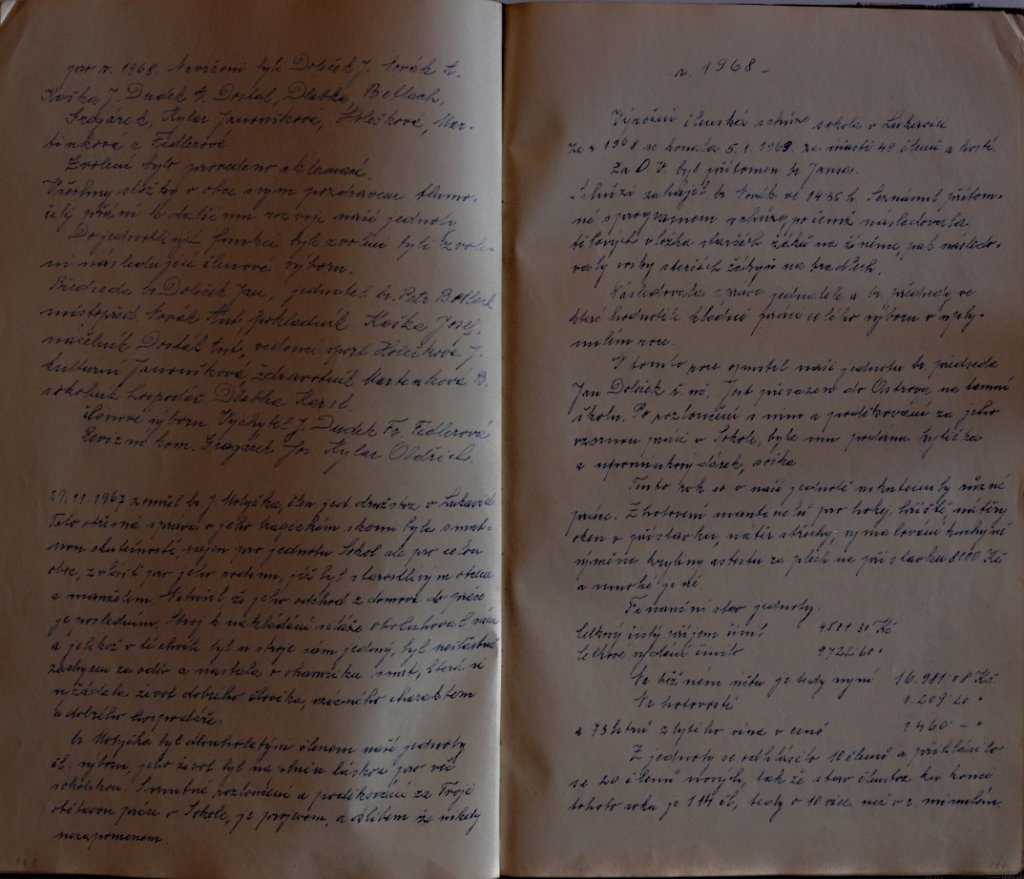 pro r. 1968. Navrženi byli Doleček J. Novák A.
Kaška J. Dudek F. Dostal, Dlabka, Betlach,
Gregárek, Kylar Janoušková, Holešková, Mar-
tinková a Fidlerová
Zvolení bylo provedeno aklamací.
Všechny složky v obci svým pozdravem tlumo-
čily přání k dalšímu rozvoji naší jednoty
Do jednotlivých funkcí byli zvoleni
ni následující členové výboru.
Předseda br. Doleček Jan, jednatel br. Petr Betlach
místopřed. Novák Ant, pokladník Kaška Josef.
náčelník Dostál Ant, vedoucí sport Holešková J.
kulturní Janoušková, Zdravotník Martinková B.
hospodář Dlabka Karel.
členové výboru Vychytil J. Dudek Fr. Fidlerová
Revizní kom. Gregárek Jos. Kylar Oldřich.
29. 11. 1967 zemřel br. J. Motyčka, člen jed. družstva v Lukavici
Tato otřesná zpráva o jeho tragickém skonu byla smut-
nou skutečností, nejen pro jednotu Sokol ale pro celou
obec, zvlášť pro jeho rodinu, jíž byl starostlivým otcem
a manželem. Netušil že jeho odchod z domova do práce
je posledním. Stroj k nakládání siláže obsluhoval sám
a jelikož v té chvíli byl u stroje sám jediný, byl nešťastně
zachycen za oděv a nastala v okamžiku smrt, která si
vyžádala život dobrého člověka, vzácného charakteru
a dobrého hospodáře.
br. Motyčka byl dlouholetým členem naší jednoty
čl. výboru, jeho život byl naplněn láskou pro věc
sokolskou. Smutné rozloučení a poděkování za Tvoji
obětavou práci v Sokole, je projevem, a slibem že nikdy
nezapomenem.
r. 1968 -
Výroční členská schůze sokola v Lukavici
za r 1968 se konala 5. 1. 1969 za účasti 49 členů a hostí.
Za O. V. byl přítomen br Janus.
Schůzi zahájil br Novák ve 14 35 h. Seznámil přítom-
né s programem schůze, po čemž následovala
tělových vložka starších žáků na žíněnce, pak násled-
valy cviky starších žákyň na bradlech.
Následovala zpráva jednatele a br. předsedy ve
které hodnotili kladně práci celého výboru v uply-
nulém roce.
V tomto roce opustil naši jednotu br předseda
Jan Doleček ř. uč, Jest přesazen do Ostrova, na tamní
školu. Po rozloučení s ním a poděkování za jeho
vzornou práci v Sokole, byla mu podána kytička
a upomínkový dárek, soška.
Tento rok se v naší jednotě uskutečnily různé
práce. Zhotovení mantinelů pro hokej. hřiště nátěry
oken v přístavku, nátěr střechy, vymalování kuchyně
výměna krytiny astestu za plech na přístavku 8000 Kč
a mnohé jiné
Finanční stav jednoty.
Celkový čistý příjem činil 4501 30 Kč
Celkové vydání činilo 9722 60 "
Na běžném účtu je tedy nyní 16.981 08 Kč
Na hotovosti 1.209 20 "
a 73 litrů zbylého vína v ceně 1460 - "
Z jednoty se odhlásilo 10 členů a přihlásilo
se 20 členů nových, tak že stav členstva ku konci
tohoto roku je 114 čl, tedy o 10 více než v r. minulém